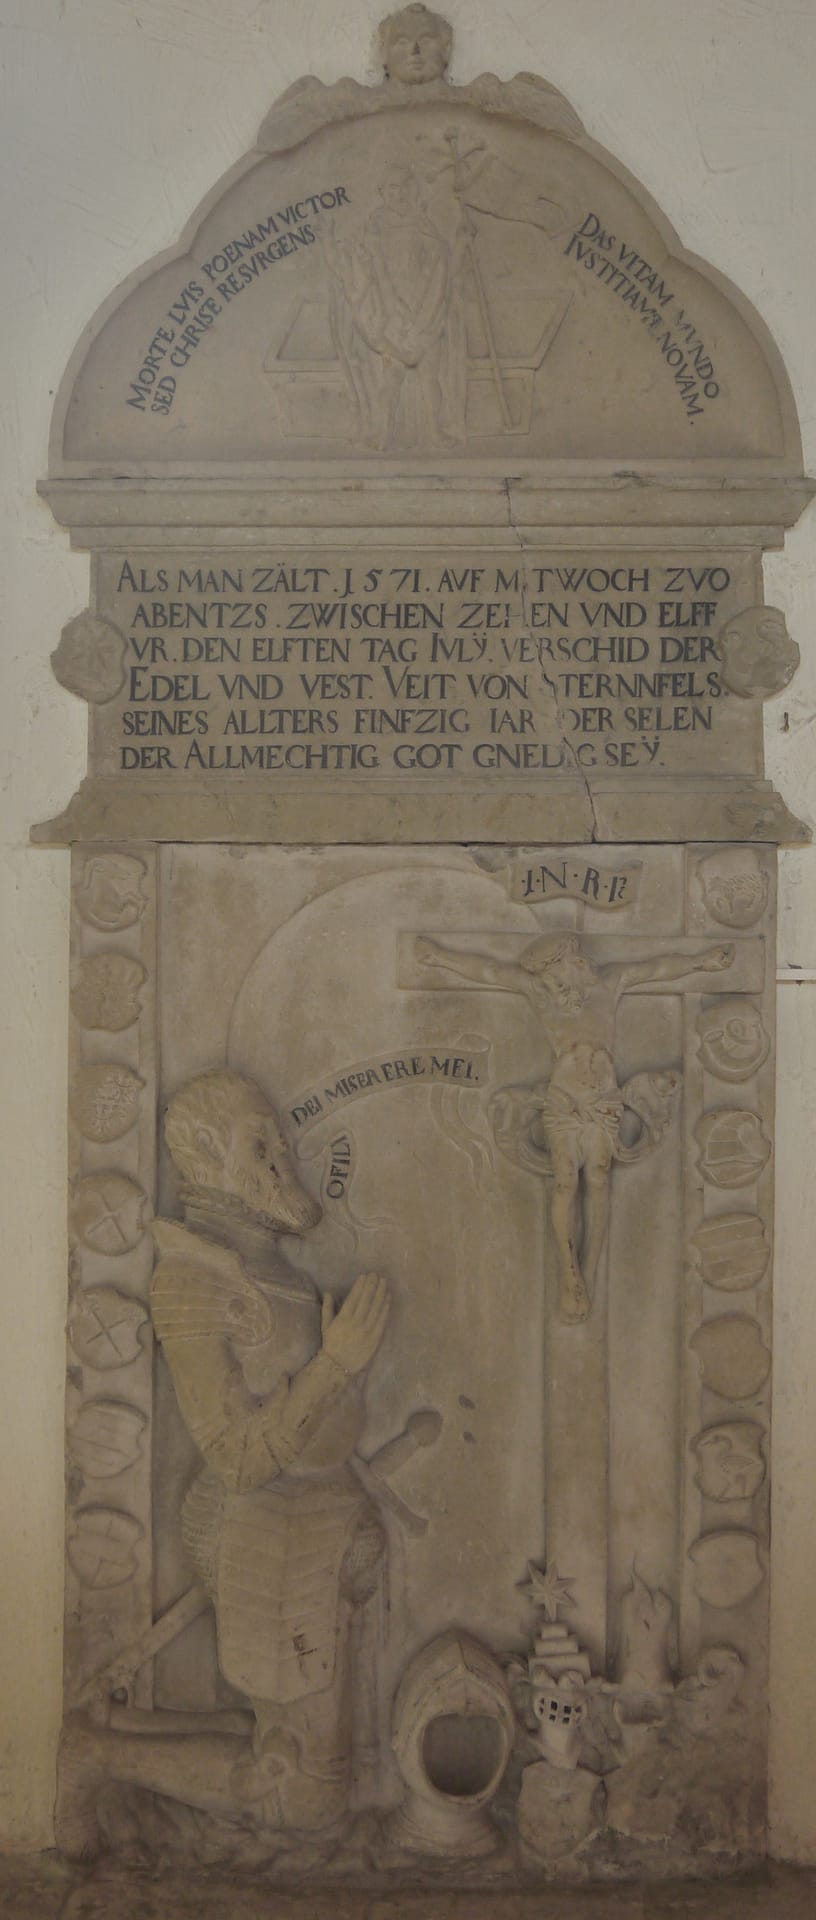 MORTE LVIS POENAM VICTOR
SED CHRISTE RESVRGENS
DAS VITAM MVNDO
IVSTITIAMQE NOVAM.
ALS MAN ZÄLT . 1571 . AVF MITWOCH ZVO
ABENTZS . ZWISCHEN ZEHEN VND ELFF
VR . DEN ELFTEN TAG IVLŸ . VERSCHID DER
EDEL VND VEST . VEIT VON STERNNFELS .
SEINES ALLTERS FINFZIG IAR DER SELEN
DER ALLMECHTIG GOT GNEDIG SEŸ .
·I·N·R·I
OFILI
DEI MISERERE MEI .